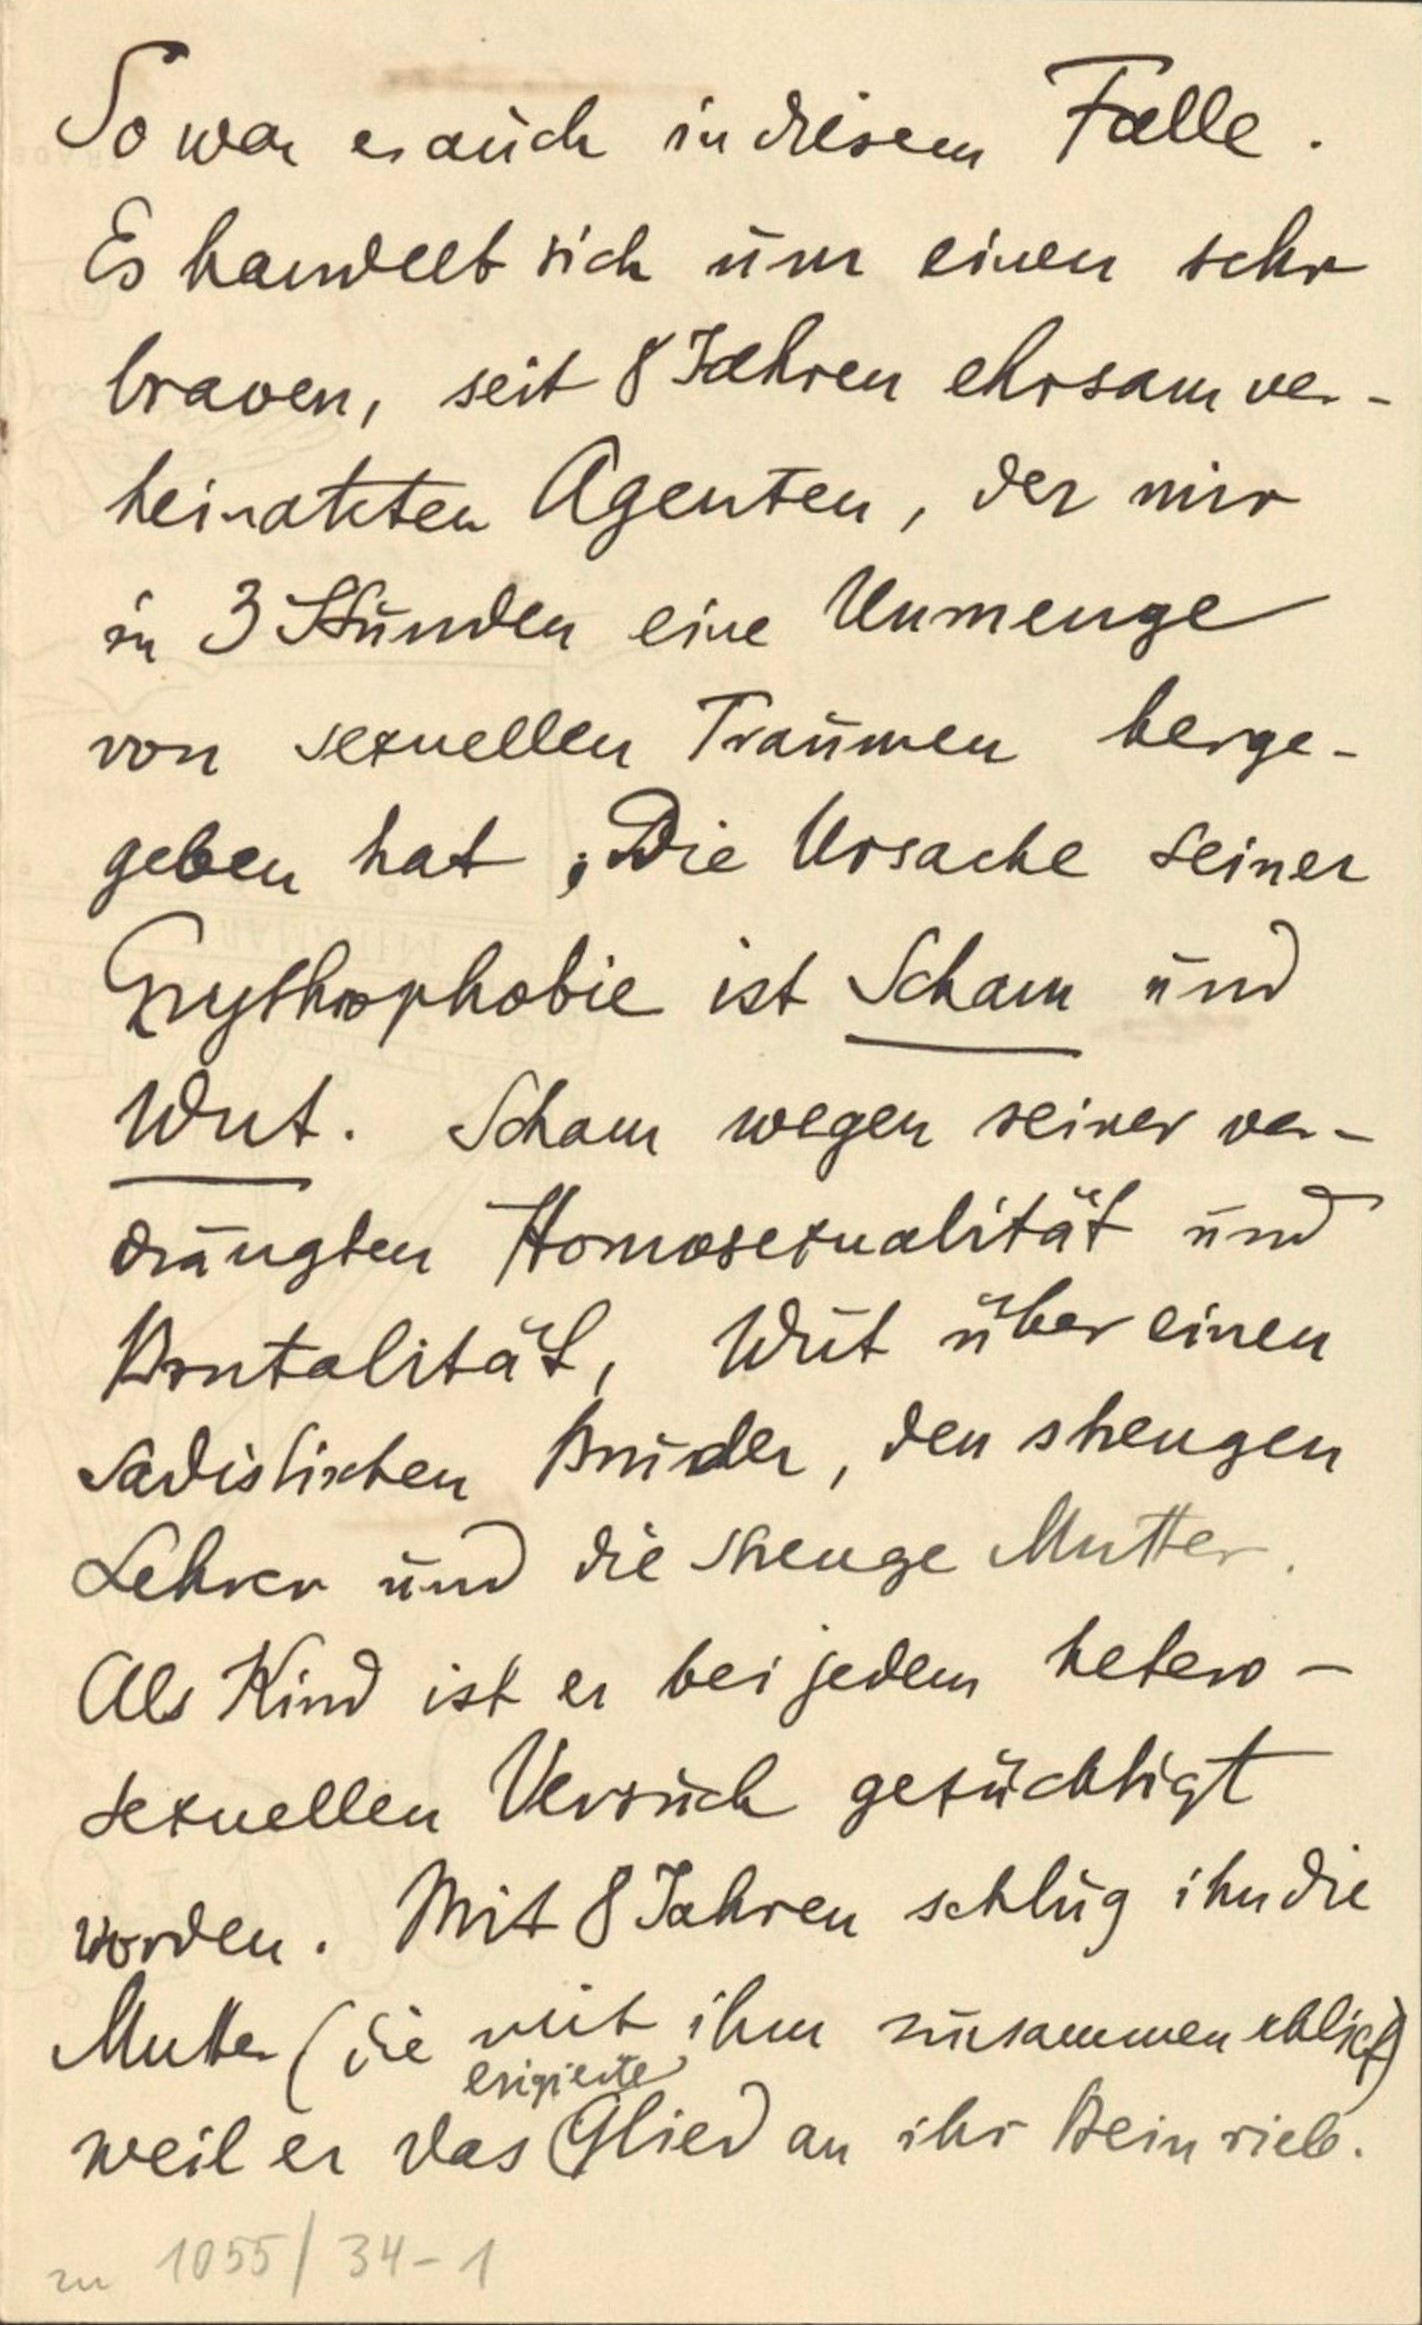 So war es auch in diesem Falle.
Es handelt sich um einen sehr
braven, seit 8 Jahren ehrsam ver-
heirateten Agenten, der mir
in 3 Stunden eine Unmenge
von sexuellen Traumen herge-
geben hat, Die Ursache seiner
Erythrophobie ist Scham und
Wut. Scham wegen seiner ver-
drängten Homosexualität und
Brutalität, Wut über einen
sadistischen Bruder, den strengen
Lehrer und die strenge Mutter.
Als Kind ist er bei jedem hetero-
sexuellen Versuch gezüchtigt
worden. Mit 8 Jahren schlug ihn die
Mutter (die mit ihm zusammen schlief)
erigierte
weil er das Glied an ihr Bein rieb.
zu 1055/34-1